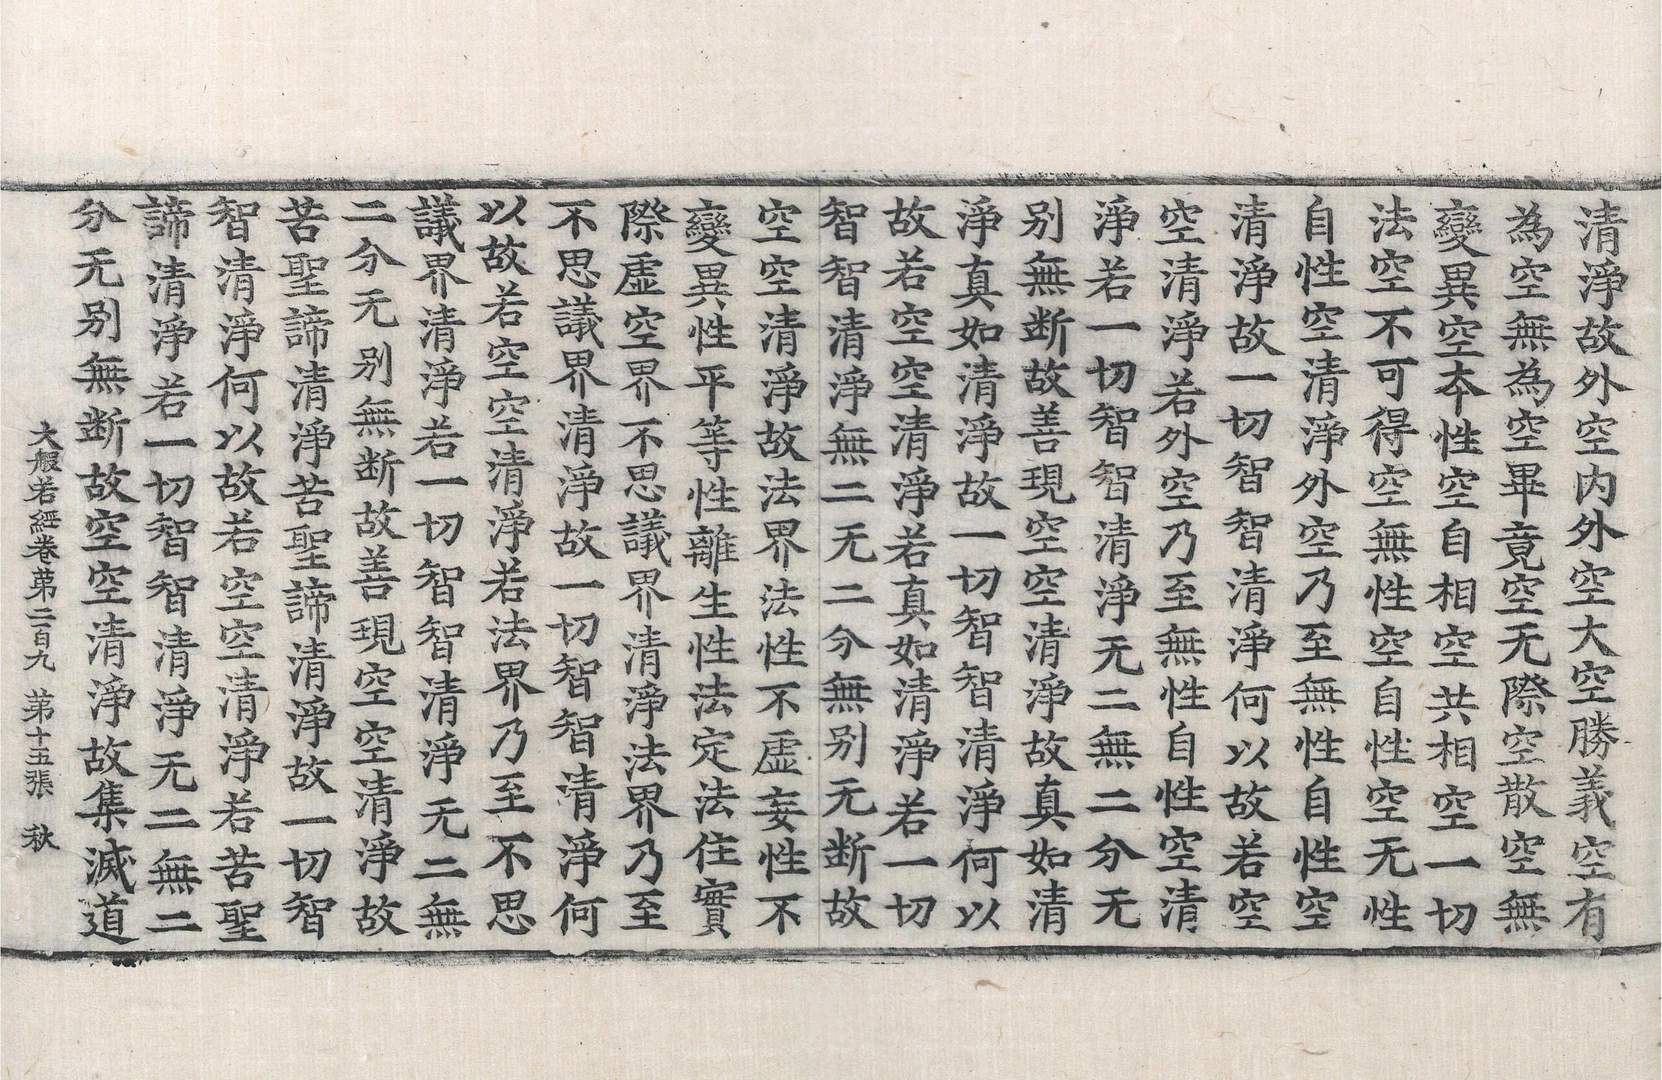 清淨故外空内外空大空勝義空有
為空無為空畢竟空无際空散空無
變異空本性空自相空共相空一切
法空不可得空無性空自性空无性
自性空清淨外空乃至無性自性空
清淨故一切智智清淨何以故若空
空清淨若外空乃至無性自性空清
淨若一切智智清淨无二無二分无
别無断故善現空空清淨故真如清
淨真如清淨故一切智智清淨何以
故若空空清淨若真如清淨若一切
智智清淨無二无二分無别无断故
空空清淨故法界法性不虛妄性不
變異性平等性離生性法定法住實
際虛空界不思議界清淨法界乃至
不思議界清淨故一切智智清淨何
以故若空空清淨若法界乃至不思
議界清淨若一切智智清淨无二無
二分无别無断故善現空空清淨故
苦聖諦清淨苦聖諦清淨故一切智
智清淨何以故若空空清淨若苦聖
諦清淨若一切智智清淨无二無二
分无别無断故空空清淨故集滅道
大般若經卷第二百九 第十五張 秋